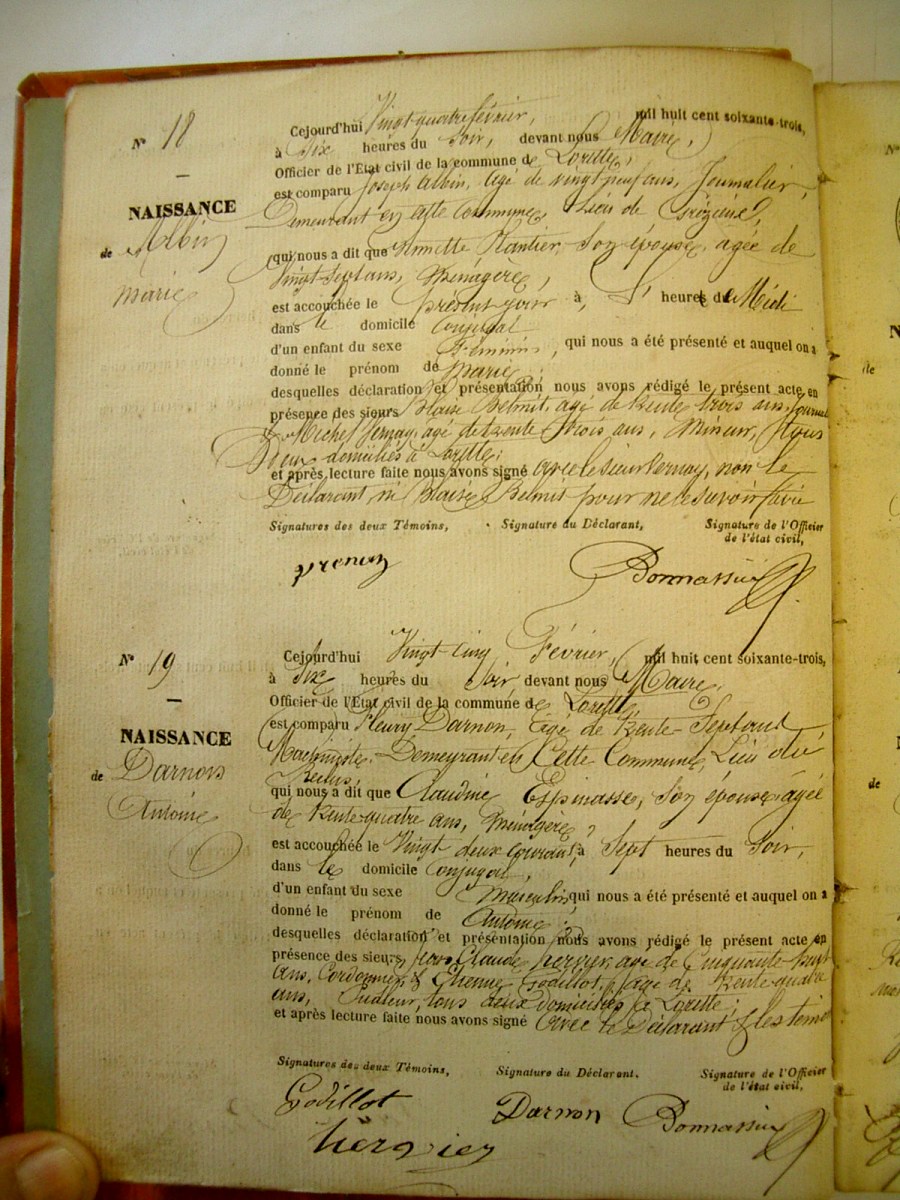 Nº 18
NAISSANCE
de Albin
Marie
Cejourd'hui Vingt quatre février, mil huit cent soixante-trois,
à Six heures du Soir, devant nous Maire,
Officier de l'Etat civil de la commune de Lorette,
est comparu Joseph Albin, âgé de vingt neuf ans, Journalier,
Demeurant en cette Commune, Lieu de Grézieux,
qui nous a dit que Annette Plantier, Son épouse, agée de
Vingt Sept ans, Ménagère,
est accouchée le présent jour à heures du Midi
dans le domicile Conjugal
d'un enfant du sexe Féminin, qui nous a été présenté et auquel on a
donné le prénom de Marie;
desquelles déclaration et présentation nous avons rédigé le présent acte en
présence des sieurs Blaise Belmit, agé de trente trois ans,
& Michel agé de trente trois ans, Mineur, tous
Deux domiciliés à Lorette;
et après lecture faite nous avons signé avec le sieur non le
Déclarant ni Blaise Belmit pour ne le savoir faire
Signatures des deux Témoins, Signature du Déclarant, Signature de l'Officier
de l'état civil,
Bonnassieux
Nº 19
NAISSANCE
de Darnon
Antoine
Cejourd'hui Vingt cinq Février, mil huit cent soixante-trois,
à Six heures du Soir devant nous Maire,
Officier de l'Etat civil de la commune de Lorette,
est comparu Fleury Darnon, agé de trente Sept ans
Machiniste Demeurant en Cette Commune, Lieu du
Reclus,
qui nous a dit que Claudine Espinasse, Son épouse agée
de trente quatre ans, Ménagère,
est accouchée le Vingt deux courant, à Sept heures du Soir,
dans le domicile Conjugal,
d'un enfant du sexe Masculin, qui nous a été présenté et auquel on a
donné le prénom de Antoine;
desquelles déclaration et présentation nous avons rédigé le présent acte en
présence des sieurs Jean Claude agé de Cinquante huit
ans, Cordonnier & Etienne Godillot, agé de trente quatre
ans, tous deux domiciliés à Lorette;
et après lecture faite nous avons signé avec le Déclarant & les témoins
Signatures des deux Témoins, Signature du Déclarant. Signature de l'Officier
de l'état civil,
Godillot Darnon Bonnassieux